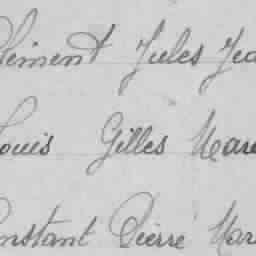 Clément Jules Jea
Louis Gilles Marc
Constant Pierre Mar